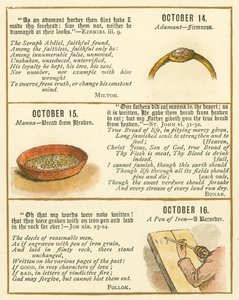 "As an adamant harder than flint have I
made thy forehead: fear them not, neither be
dismayed at their looks."—EZEKIEL iii. 9.
The Seraph Abdiel, faithful found,
Among the faithless, faithful only he:
Among innumerable false, unmoved,
Unshaken, unseduced, unterrified,
His loyalty he kept, his love, his zeal.
Nor number, nor example with him
wrought
To swerve from truth, or change his constant
mind.
MILTON.
OCTOBER 14.
Adamant—Firmness.
OCTOBER 15.
Manna—Bread from Heaven.
"Our fathers did eat manna in the desert; as
it is written, He gave them bread from heaven
to eat; but my Father giveth you the true bread
from heaven."—ST. JOHN vi. 31-32.
True Bread of life, in pitying mercy given,
Long-famished souls to strengthen and to
feed;
[Heaven,
Christ Jesus, Son of God, true Bread of
Thy Flesh is meat, Thy Blood is drink
indeed.
[fail,
I cannot famish, though this earth should
Though life through all its fields should
pine and die;
[each vale,
Though the sweet verdure should forsake
And every stream of every land run dry.
BONAR.
"Oh that my words were now written!
that they were graven with an iron pen and lead
in the rock for ever!—JOB xix. 23-24.
The deeds of reasonable men,
As if engraven with pen of iron grain,
And laid in flinty rock, there stand
unchanged,
Written on the various pages of the past:
If good, in rosy characters of love;
If bad, in letters of vindictive fire:
God may forgive, but cannot blot them out.
POLLOK.
OCTOBER 16.
A Pen of Iron—A Recorder.